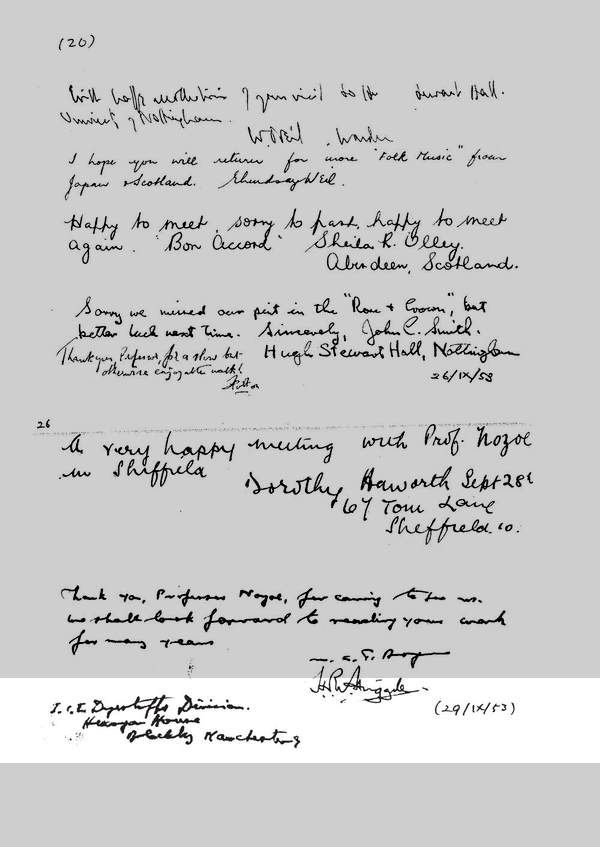 (20)
With happy recollections of your visit to Hugh Stewart Hall.
University of Nottingham.
Warden
I hope you will return for more "Folk Music" from
Japan & Scotland.
Happy to meet, sorry to part, happy to meet
again. "Bon Accord" Sheila R. Olley.
Aberdeen, Scotland.
Sorry we missed our pint in the "Rose & Crown", but
better luck next time. Sincerely, John C. Smith.
Hugh Stewart Hall, Nottingham
Thank you, Professor, for a slow but
otherwise enjoyable walk!
26/IX/53
26
A very happy meeting with Prof. Nozoe
in Sheffield
Dorothy Haworth Sept 28th
67 Tom Lane
Sheffield. 10.
Thank you, Professor Nozoe, for coming to see us.
We shall look forward to reading your work
for many years
I.C.I. Dyestuffs Division.
Hexagon House
Blackley Manchester 9
(29/IX/53)